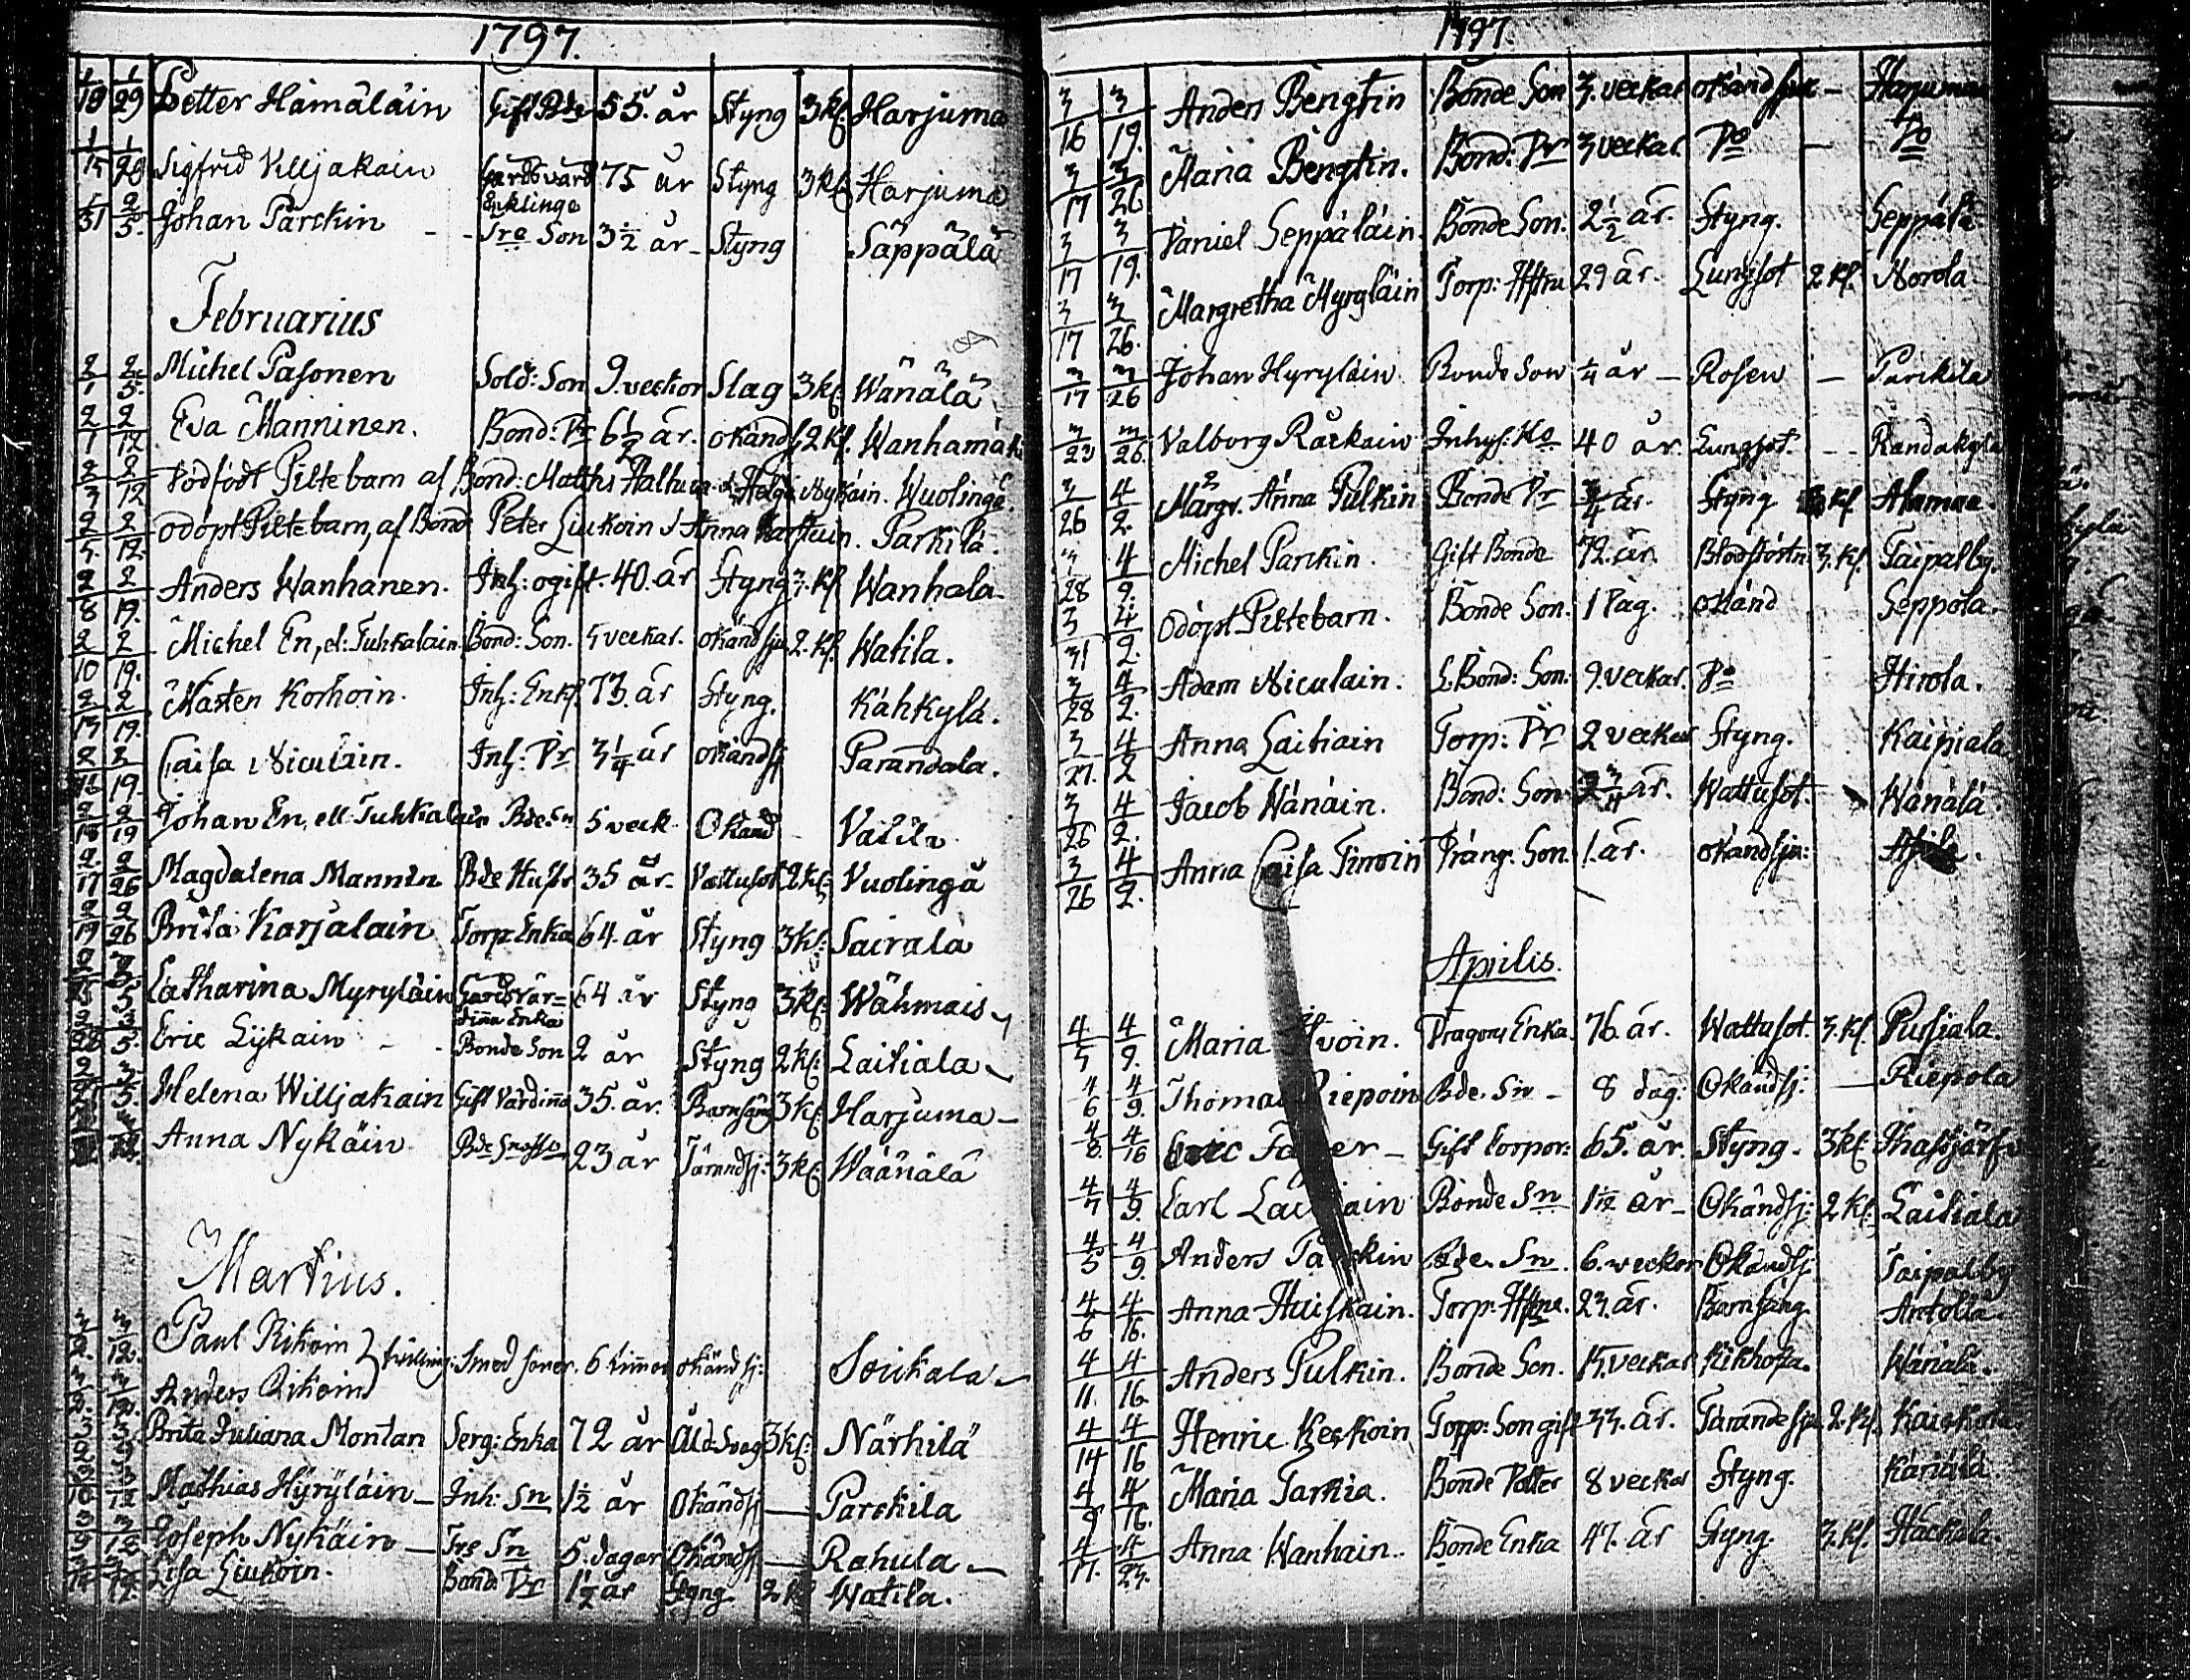 1797.
1/18 1/29 Petter Hämäläin Gift Bde 55. år Styng 3 kl. Harjuma
1/15 1/28 Sigfrid Villjakain Gårdsvärd Enklinge 75 år Styng 3 kl. Harjuma
1/31 2/5. Johan Parckin - - Tro Son 3½ år - Styng Säppälä
Februarius
2/1 2/5. Michel Pasonen Sold: Son 9. veckor Slag 3 kl. Wänälä
2/1 2/12 Eva Manninen. Bond: Dr 6½ år. okänd 2 kl. Wanhamäki
2/3 2/12 Dödfödt Piltebarn af Bond: Matths Halhuin Helga Nykäin. Wuolingå.
2/5 2/12. odöpt Piltebarn, af Bond Peter Liukoin Anna Karhuin. Parkila.
2/8 2/19. Anders Wanhanen. Inh: ogift. 40. år Styng 3. kl. Wanhala
2/10 2/19. Michel En, el: Tuhkalain. Bond: Son. 5 veckar. okänd sju 2. kl. Watila.
2/13 2/19. Mårten Korhoin. Inh: Enkl. 73. år Styng. Kähkylä.
2/19. Caisa Niculain. Inh: Dr 3¼ år okändsj Parandala.
2/19 Johan En, ell Tuhkalain Bde. Sn 5 veck Okänd Vatila
2/17 2/26 Magdalena Mannin Bde Hustr 35 år. Vattusot 2 kl. Vuolingå
2/19 2/26 Brita Karjalain Torp: Enka 64. år Styng 3 kl: Sairala
3/5 Catharina Myryläin Gårdsvärdinna Enka 64 år Styng 3 kl. Wähmais
2/28 3/5. Eric Lÿkain - - Bonde Son 2 år Styng 2 kl: Laitiala
3/5. Helena Willjakain Gift Värdinna 35. år. Barnsäng 3 kl. Harjuma -
Anna Nykäin Bde 23 år Tärandsj: 3 kl. Wäänälä
Martius.
3/2. 3/12. Paul Rikoin } tvilling: Smed söner. 6 timar okänd sj: Soickala
3/2. 3/12. Anders Rikoin
Brita Juliana Montan Serg: Enka 72 år Åld: Svag 3 kl: Närhilä
3/10 3/12 Mathias Hÿryläin - Inh: Sn 1½ år Okändsj - Parckila
3/9 3/12 Joseph Nykäin - Tro Sn 5. dagar Okändsj - Rahula
Lisa Liukoin. Bond: Dr 1½ år Styng 2 kl Watila.
1797.
3/16 3/19. Anders Bengtin Bonde Son 3. veckar okänd sju - Harjumaa
3/17 3/26 Maria Bengtin. Bond: Dr 3 veckar. Do - Do
3/17 3/19. Daniel Seppäläin. Bonde Son. 2½ år. Styng. Seppälä
3/17 3/26. Margretha Myrgläin Torp: Hstru 29 år. Lungsot 2 kl. Norola
3/17 3/26 Johan Hyryläin Bonde Son ¼ år - Rosen - Parckila
3/23 3/26. Valborg Räckain Inhys: Ko 40 år. Lungsot. - - Randakylä
3/26 4/2. Margr. Anna Pulkin Bonde Dr ¾ år. Styng kl Alamaa.
3/28 4/9. Michel Parckin. Gift Bonde 72. år. Blodstörtn 3. kl. Taipalby.
3/31 4/2. Odöpt Piltebarn. Bonde Son. 1 Dag. okänd Seppola.
3/28 4/2. Adam Niculain. L. Bond: Son. 9. veckar. Do Hirola.
3/27. 4/2 Anna Laitiain Torp: Dr 2 veckar Styng. Kaipiala
3/26 4/2. Jacob Wänäin. Bond: Son 2¾ år. Wattusot. Wänälä.
3/26 4/2. Anna Caisa Timoin Dräng: Son. 1. år. okändsju:
Aprilis.
4/5 4/9. Maria Hvoin. Dragons Enka 76. år. Wattusot. 3. kl. Pusiala.
4/6 4/9. Thomas Riepoin Bde. Sn - 8 dag: Okändsj: - Riepola
4/8. 4/16 Eric Fa er - Gift Corpor: 65. år. Styng. 3 kl: Ihastjärfvi
4/7 4/9. Carl Laitiain Bonde Sn 1½ år - Okändsj: 2 kl: Laitiala
4/5 4/9. Anders Parckin Bde. Sn. 6. veckor Okändsj. Taipalby
4/6 4/16. Anna Huiskain. Torp: Hstru. 23. år. Barnsäng. Anttola
4/11. 4/16. Anders Pulkin. Bonde Son. 15. veckar Kikhosta. Wänälä.
4/14 4/16 Henric Keckoin Torp: Son gift 33. år. Tärandesju 2. kl. Kaickola
4/9 4/16. Maria Tarkia. Bonde Dotter 8 veckar Styng. Käriälä.
4/17. 4/23. Anna Wanhain. Bonde Enka 47. år Styng. 3. kl. Hackala.